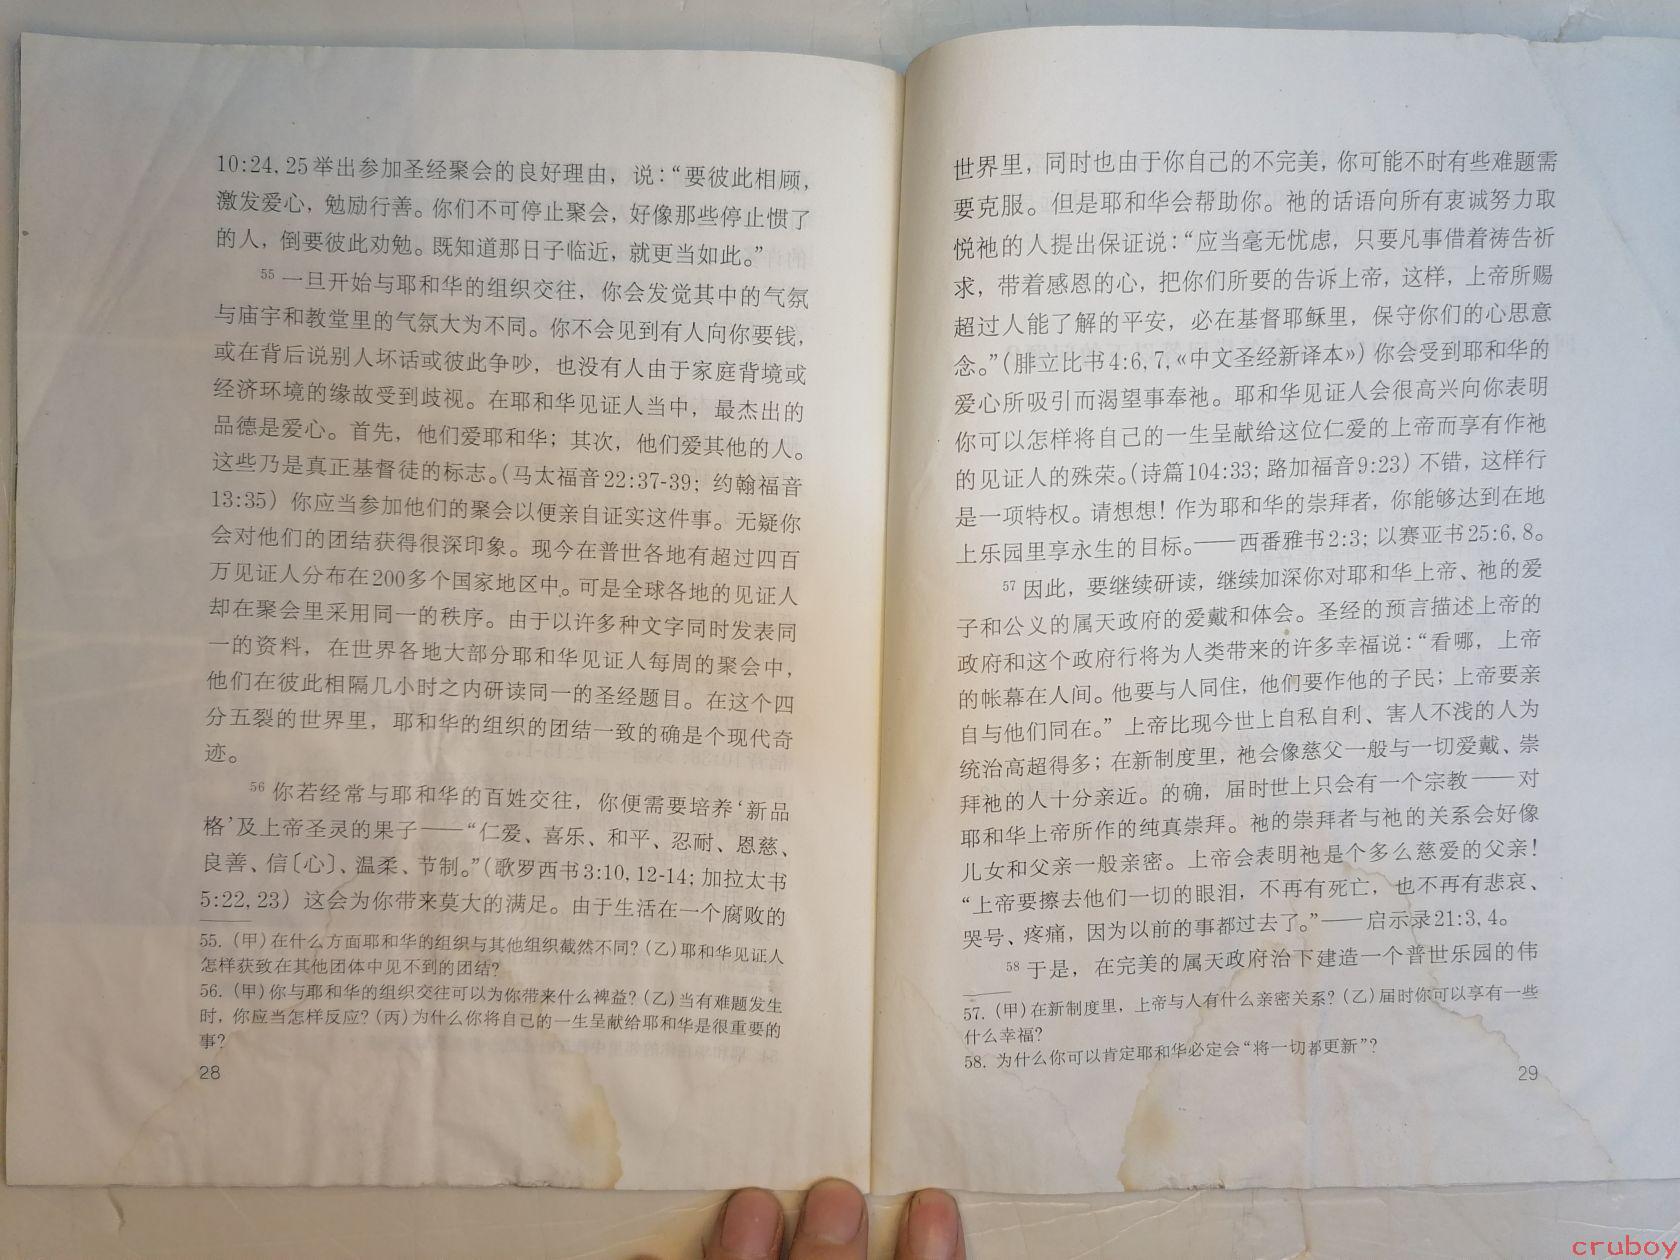 10:24, 25举出参加圣经聚会的良好理由，说：“要彼此相顾，
激发爱心，勉励行善。你们不可停止聚会，好像那些停止惯了
的人，倒要彼此劝勉。既知道那日子临近，就更当如此。”
55 一旦开始与耶和华的组织交往，你会发觉其中的气氛
与庙宇和教堂里的气氛大为不同。你不会见到有人向你要钱，
或在背后说别人坏话或彼此争吵，也没有人由于家庭背境或
经济环境的缘故受到歧视。在耶和华见证人当中，最杰出的
品德是爱心。首先，他们爱耶和华；其次，他们爱其他的人。
这些乃是真正基督徒的标志。（马太福音22:37-39；约翰福音
13:35）你应当参加他们的聚会以便亲自证实这件事。无疑你
会对他们的团结获得很深印象。现今在普世各地有超过四百
万见证人分布在200多个国家地区中。可是全球各地的见证人
却在聚会里采用同一的秩序。由于以许多种文字同时发表同
一的资料，在世界各地大部分耶和华见证人每周的聚会中，
他们在彼此相隔几小时之内研读同一的圣经题目。在这个四
分五裂的世界里，耶和华的组织的团结一致的确是个现代奇
迹。
56 你若经常与耶和华的百姓交往，你便需要培养‘新品
格’及上帝圣灵的果子——“仁爱、喜乐、和平、忍耐、恩慈、
良善、信〔心〕、温柔、节制。”（歌罗西书3:10, 12-14；加拉太书
5:22, 23）这会为你带来莫大的满足。由于生活在一个腐败的
55. （甲）在什么方面耶和华的组织与其他组织截然不同？（乙）耶和华见证人
怎样获致在其他团体中见不到的团结？
56. （甲）你与耶和华的组织交往可以为你带来什么裨益？（乙）当有难题发生
时，你应当怎样反应？（丙）为什么你将自己的一生呈献给耶和华是很重要的
事？
28
世界里，同时也由于你自己的不完美，你可能不时有些难题需
要克服。但是耶和华会帮助你。祂的话语向所有衷诚努力取
悦祂的人提出保证说：“应当毫无忧虑，只要凡事借着祷告祈
求，带着感恩的心，把你们所要的告诉上帝，这样，上帝所赐
超过人能了解的平安，必在基督耶稣里，保守你们的心思意
念。”（腓立比书4:6, 7,《中文圣经新译本》）你会受到耶和华的
爱心所吸引而渴望事奉祂。耶和华见证人会很高兴向你表明
你可以怎样将自己的一生呈献给这位仁爱的上帝而享有作祂
的见证人的殊荣。（诗篇104:33；路加福音9:23）不错，这样行
是一项特权。请想想！作为耶和华的崇拜者，你能够达到在地
上乐园里享永生的目标。——西番雅书2:3；以赛亚书25:6, 8。
57 因此，要继续研读，继续加深你对耶和华上帝、祂的爱
子和公义的属天政府的爱戴和体会。圣经的预言描述上帝的
政府和这个政府行将为人类带来的许多幸福说：“看哪，上帝
的帐幕在人间。他要与人同住，他们要作他的子民；上帝要亲
自与他们同在。”上帝比现今世上自私自利、害人不浅的人为
统治高超得多；在新制度里，祂会像慈父一般与一切爱戴、崇
拜祂的人十分亲近。的确，届时世上只会有一个宗教——对
耶和华上帝所作的纯真崇拜。祂的崇拜者与祂的关系会好像
儿女和父亲一般亲密。上帝会表明祂是个多么慈爱的父亲！
“上帝要擦去他们一切的眼泪，不再有死亡，也不再有悲哀、
哭号、疼痛，因为以前的事都过去了。”——启示录21:3, 4。
58 于是，在完美的属天政府治下建造一个普世乐园的伟
57. （甲）在新制度里，上帝与人有什么亲密关系？（乙）届时你可以享有一些
什么幸福？
58. 为什么你可以肯定耶和华必定会“将一切都更新”？
29
cruboy